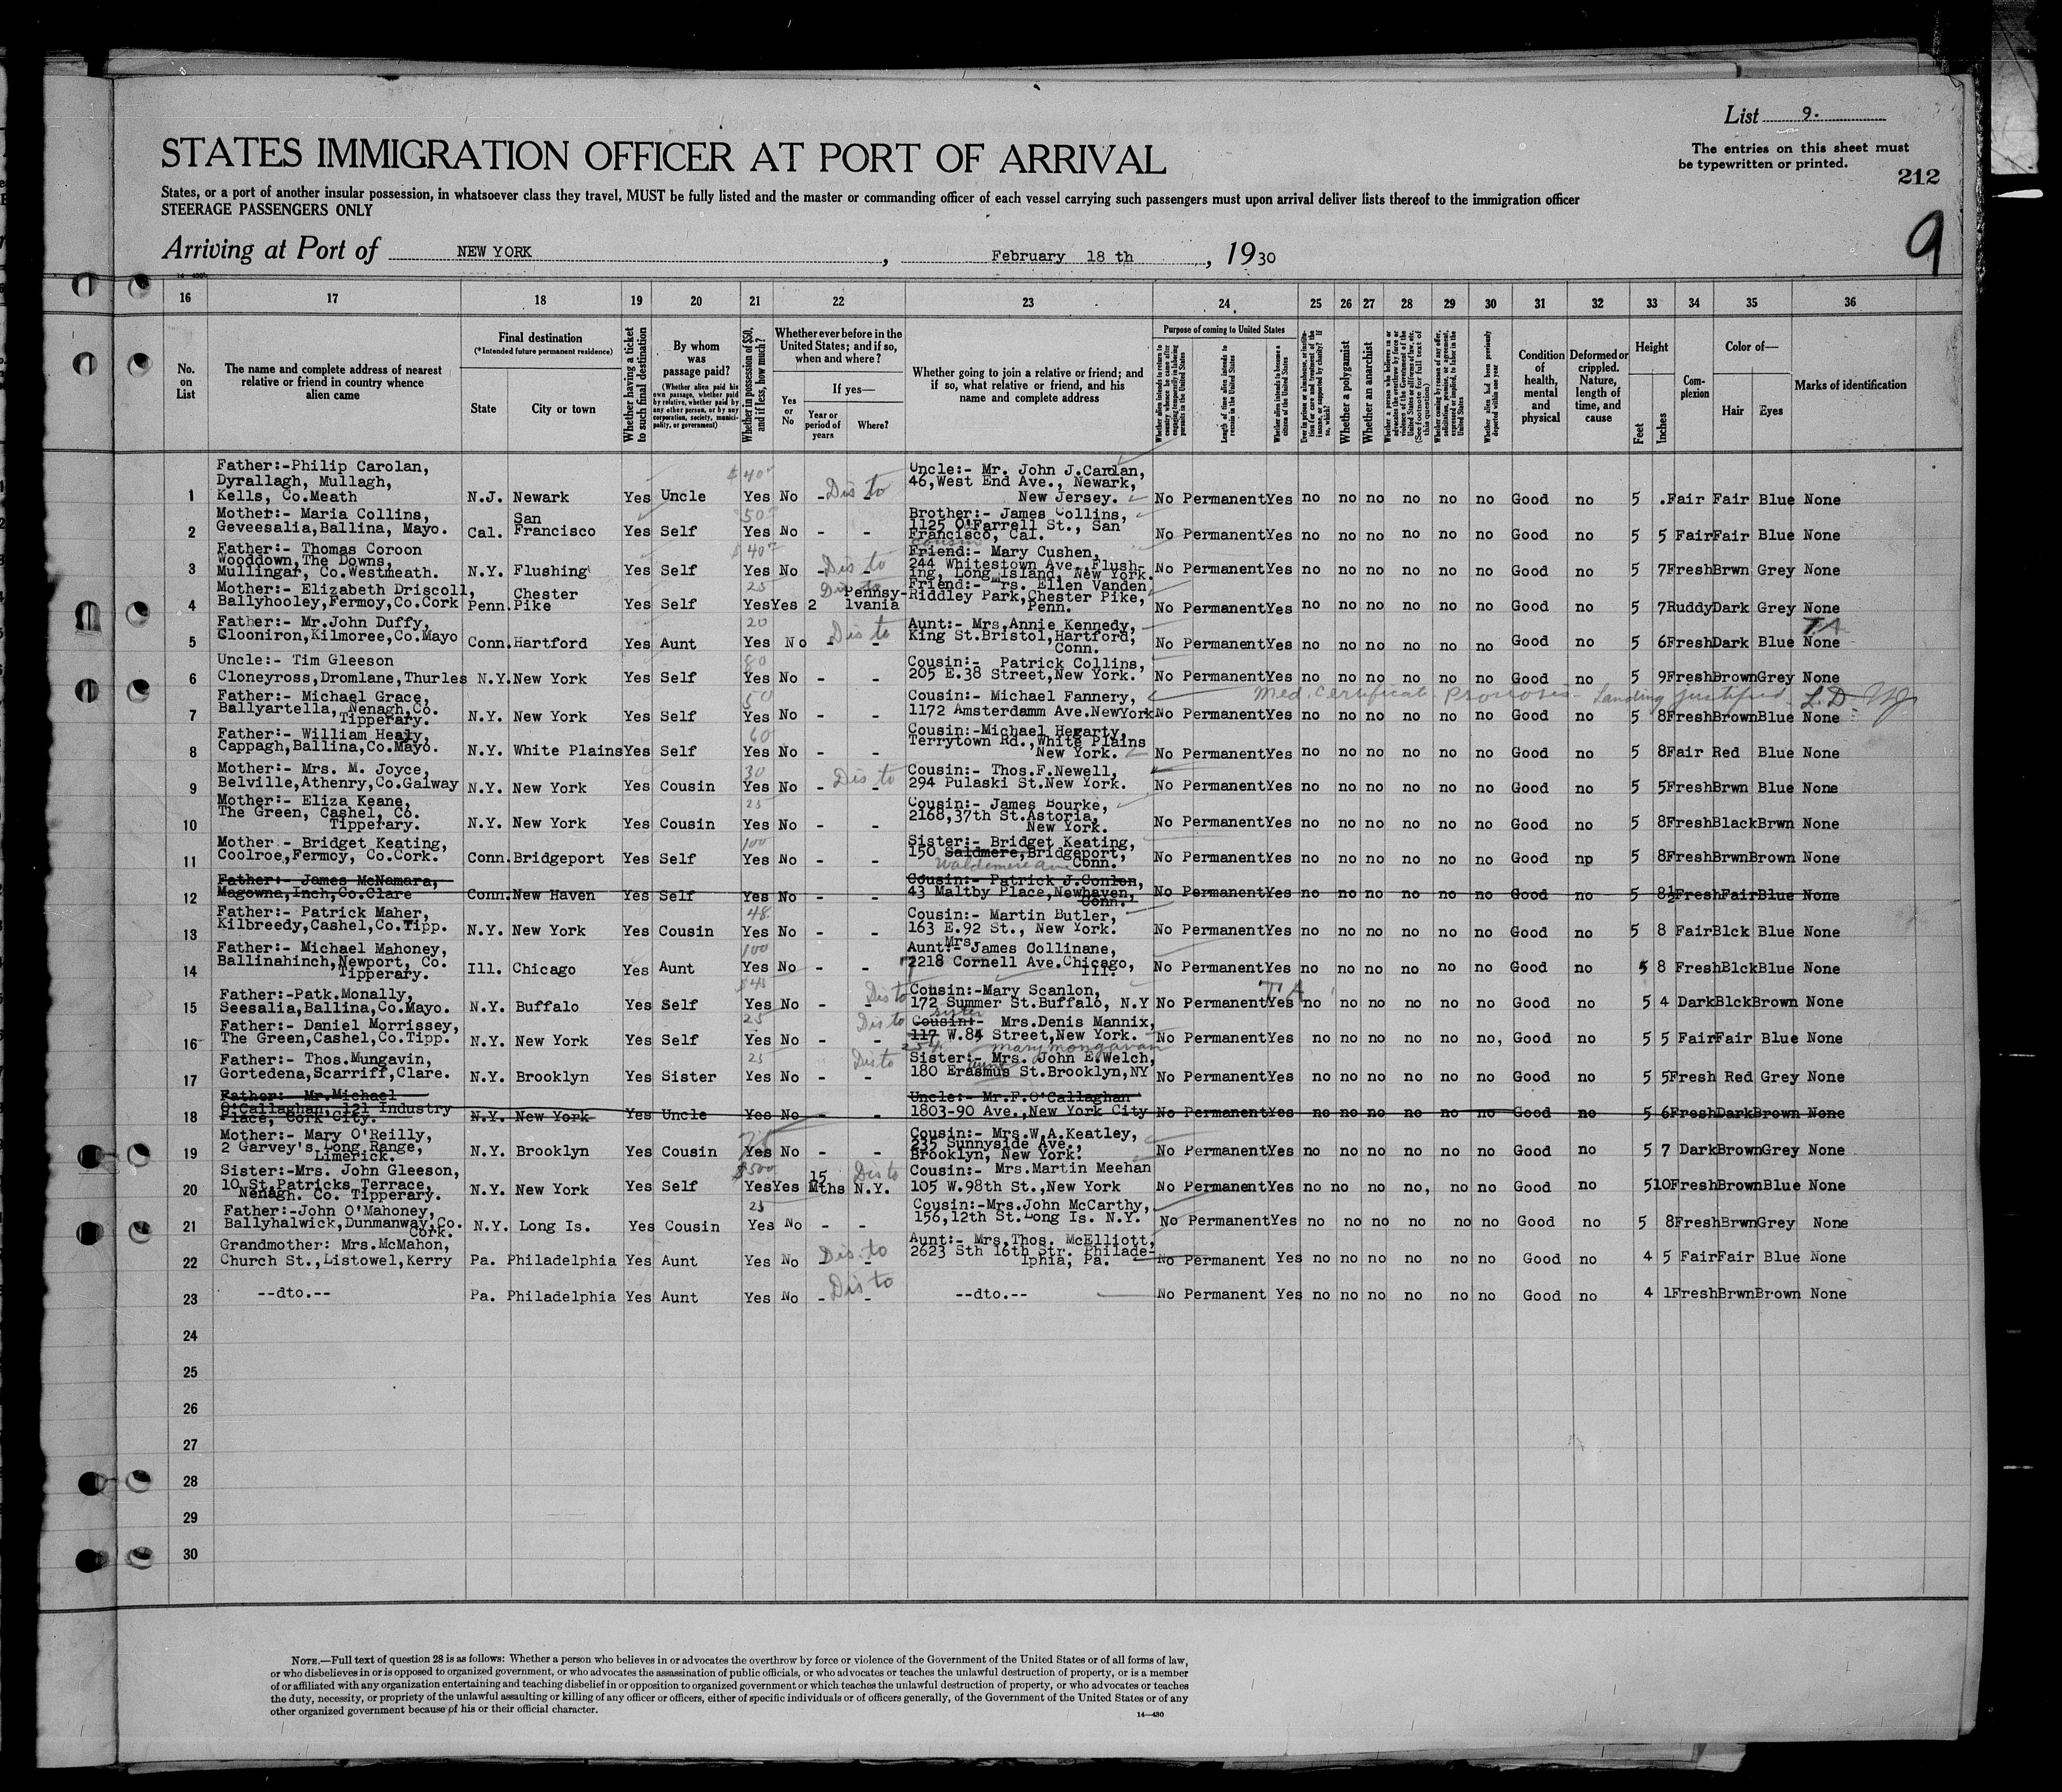 List 9.
The entries on this sheet must
be typewritten or printed.
212
9
STATES IMMIGRATION OFFICER AT PORT OF ARRIVAL
States, or a port of another insular possession, in whatsoever class they travel, MUST be fully listed and the master or commanding officer of each vessel carrying such passengers must upon arrival deliver lists thereof to the immigration officer
STEERAGE PASSENGERS ONLY
Arriving at Port of NEW YORK , February 18 th , 1930
16 17 18 19 20 21 22 23 24 25 26 27 28 29 30 31 32 33 34 35 36
No. on List
The name and complete address of nearest relative or friend in country whence alien came
Final destination
(*Intended future permanent residence)
State
City or town
Whether having a ticket to such final destination
By whom was passage paid?
(Whether alien paid his own passage, whether paid by relative, whether paid by any other person, or by any corporation, society, municipality, or government)
Whether in possession of $50, and if less, how much?
Whether ever before in the United States; and if so, when and where?
Yes or No
If yes—
Year or period of years
Where?
Whether going to join a relative or friend; and if so, what relative or friend, and his name and complete address
Purpose of coming to United States
Length of time alien intends to remain in the United States
Whether alien intends to become a citizen of the United States
Whether a polygamist
Whether an anarchist
Whether alien had been previously deported within one year
Condition of health, mental and physical
Deformed or crippled. Nature, length of time, and cause
Height
Feet
Inches
Complexion
Color of—
Hair
Eyes
Marks of identification
Father:-Philip Carolan,
Dyrallagh, Mullagh,
Kells, Co.Meath
1 N.J. Newark Yes Uncle $40 Yes No - Dis to -
Uncle:- Mr. John J.Carolan,
46,West End Ave., Newark,
New Jersey.
No Permanent Yes no no no no no no Good no 5 . Fair Fair Blue None
Mother:- Maria Collins,
Geveesalia,Ballina, Mayo.
2 Cal. San Francisco Yes Self 50 Yes No - -
Brother:- James Collins,
1125 O'Farrell St., San
Francisco, Cal.
No Permanent Yes no no no no no no Good no 5 5 Fair Fair Blue None
Father:- Thomas Coroon
Wooddown,The Downs,
Mullingar, Co.Westmeath.
3 N.Y. Flushing Yes Self $40 Yes No - Dis to -
cousin
Friend:- Mary Cushen,
244 Whitestown Ave.,Flush-
ing, Long Island, New York.
No Permanent Yes no no no no no no Good no 5 7 Fresh Brwn Grey None
Mother:- Elizabeth Driscoll,
Ballyhooley,Fermoy,Co.Cork
4 Penn. Chester Pike Yes Self 25 Yes Yes 2 Dis to Pennsy-lvania
Friend:- Mrs. Ellen Vanden
Riddley Park,Chester Pike,
Penn.
No Permanent Yes no no no no no no Good no 5 7 Ruddy Dark Grey None
Father:- Mr.John Duffy,
Clooniron,Kilmoree,Co.Mayo
5 Conn. Hartford Yes Aunt 20 Yes No - Dis to -
Aunt:- Mrs,Annie Kennedy,
King St.Bristol,Hartford,
Conn.
No Permanent Yes no no no no no no Good no 5 6 Fresh Dark Blue None
TA
Uncle:- Tim Gleeson
Cloneyross,Dromlane,Thurles
6 N.Y. New York Yes Self 80 Yes No - -
Cousin:- Patrick Collins,
205 E.38 Street,New York.
No Permanent Yes no no no no no no Good no 5 9 Fresh Brown Grey None
Med. Certificate Psoriasis - Landing justified L.D.
Father:- Michael Grace,
Ballyartella, Nenagh,Co.
Tipperary.
7 N.Y. New York Yes Self 50 Yes No - -
Cousin:- Michael Fannery,
1172 Amsterdamm Ave.NewYork
No Permanent Yes no no no no no no Good no 5 8 Fresh Brown Blue None
Father:- William Healy,
Cappagh,Ballina,Co.Mayo.
8 N.Y. White Plains Yes Self 60 Yes No - -
Cousin:-Michael Hegarty,
Terrytown Rd.,White Plains
New York.
No Permanent Yes no no no no no no Good no 5 8 Fair Red Blue None
Mother:- Mrs. M. Joyce,
Belville,Athenry,Co.Galway
9 N.Y. New York Yes Cousin 30 Yes No - Dis to -
Cousin:- Thos.F.Newell,
294 Pulaski St.New York.
No Permanent Yes no no no no no no Good no 5 5 Fresh Brwn Blue None
Mother:- Eliza Keane,
The Green, Cashel, Co.
Tipperary.
10 N.Y. New York Yes Cousin 25 Yes No - -
Cousin:- James Bourke,
2168,37th St.Astoria,
New York.
No Permanent Yes no no no no no no Good no 5 8 Fresh Black Brwn None
Mother - Bridget Keating,
Coolroe,Fermoy, Co.Cork.
11 Conn. Bridgeport Yes Self 100 Yes No - -
Sister:- Bridget Keating,
150 Saldmere,Bridgeport,
Waldemere Conn.
No Permanent Yes no no no no no no Good np 5 8 Fresh Brwn Brown None
Father:- James McNamara,
Magowna,Inch,Co.Clare
12 Conn. New Haven Yes Self Yes No - -
Cousin:- Patrick J.Conlon,
43 Maltby Place,Newhaven,
Conn.
No Permanent Yes no no no no no no Good no 5 8½ Fresh Fair Blue None
Father:- Patrick Maher,
Kilbreedy,Cashel,Co.Tipp.
13 N.Y. New York Yes Cousin 48 Yes No - -
Cousin:- Martin Butler,
163 E.92 St., New York.
No Permanent Yes no no no no no no Good no 5 8 Fair Blck Blue None
Father:- Michael Mahoney,
Ballinahinch,Newport, Co.
Tipperary.
14 Ill. Chicago Yes Aunt 100 Yes No - -
Aunt:- Mrs. James Collinane,
2218 Cornell Ave.Chicago,
Ill.
No Permanent Yes no no no no no no Good no 5 8 Fresh Blck Blue None
Father:-Patk.Monally,
Seesalia,Ballina,Co.Mayo.
15 N.Y. Buffalo Yes Self $45 Yes No - Dis to -
Cousin:-Mary Scanlon,
172 Summer St.Buffalo, N.Y
No Permanent Yes TA no no no no no no Good no 5 4 Dark Blck Brown None
Father:- Daniel Morrissey,
The Green,Cashel,Co.Tipp.
16 N.Y. New York Yes Self 25 Yes No - Dis to -
sister
Cousin:- Mrs.Denis Mannix,
117 W.84 Street,New York.
No Permanent Yes no no no no no no, Good no 5 5 Fair Fair Blue None
254 Mary Mongavan
Father:- Thos.Mungavin,
Gortedena,Scarriff,Clare.
17 N.Y. Brooklyn Yes Sister 25 Yes No - Dis to -
Sister:- Mrs. John E.Welch,
180 Erasmus St.Brooklyn,NY
No Permanent Yes no no no no no no Good no 5 5 Fresh Red Grey None
Father:- Mr.Michael
O'Callaghan, 121 Industry
Place, Cork City.
18 N.Y. New York Yes Uncle Yes No - -
Uncle:- Mr.F.O'Callaghan
1803-90 Ave.,New York City
No Permanent Yes no no no no no no Good no 5 6 Fresh Dark Brown None
Mother:- Mary O'Reilly,
2 Garvey's Long Range,
Limerick.
19 N.Y. Brooklyn Yes Cousin 75 Yes No - -
Cousin:- Mrs.W.A.Keatley,
235 Sunnyside Ave.,
Brooklyn, New York.
No Permanent Yes no no no no no no Good no 5 7 Dark Brown Grey None
Sister:-Mrs. John Gleeson,
10 St.Patricks Terrace,
Nenagh. Co. Tipperary.
20 N.Y. New York Yes Self $500 Yes Yes 15 Mths N.Y. Dis to
Cousin:- Mrs.Martin Meehan
105 W.98th St.,New York
No Permanent Yes no no no no, no no Good no 5 10 Fresh Brown Blue None
Father:-John O'Mahoney,
Ballyhalwick,Dunmanway,Co.
Cork.
21 N.Y. Long Is. Yes Cousin 25 Yes No - -
Cousin:-Mrs.John McCarthy,
156,12th St.Long Is. N.Y.
No Permanent Yes no no no no no no Good no 5 8 Fresh Brwn Grey None
Grandmother: Mrs.McMahon,
Church St.,Listowel,Kerry
22 Pa. Philadelphia Yes Aunt Yes No Dis to -
Aunt:- Mrs,Thos. McElliott,
2623 Sth 16th Str. Philade-
lphia, Pa.
No Permanent Yes no no no no no no Good no 4 5 Fair Fair Blue None
23 --dto.-- Pa. Philadelphia Yes Aunt Yes No - Dis to - --dto.-- No Permanent Yes no no no no no no Good no 4 1 Fresh Brwn Brown None
24
25
26
27
28
29
30
NOTE.—Full text of question 28 is as follows: Whether a person who believes in or advocates the overthrow by force or violence of the Government of the United States or of all forms of law,
or who disbelieves in or is opposed to organized government, or who advocates the assassination of public officials, or who advocates or teaches the unlawful destruction of property, or is a member
of or affiliated with any organization entertaining and teaching disbelief in or opposition to organized government or which teaches the unlawful destruction of property, or who advocates or teaches
the duty, necessity, or propriety of the unlawful assaulting or killing of any officer or officers, either of specific individuals or of officers generally, of the Government of the United States or of any
other organized government because of his or their official character.
14—430